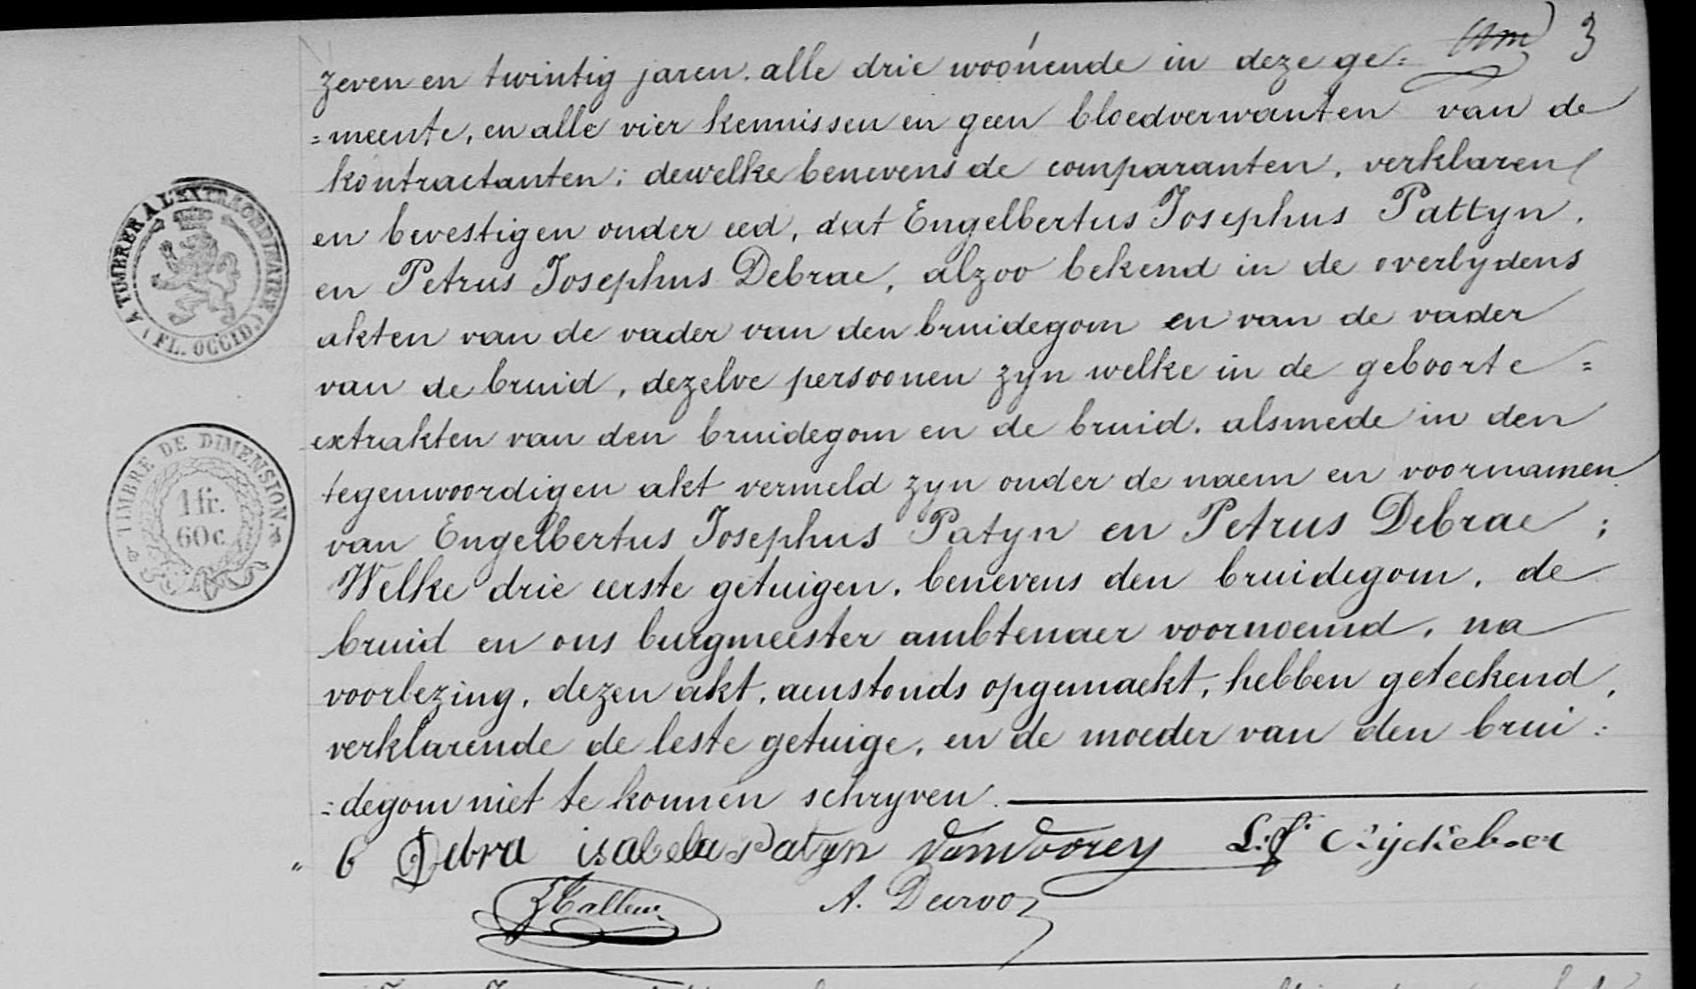 3
zeven en twintig jaren. alle drie woonende in deze ge=
=meente, en alle vier kennissen en geen bloedverwanten van de
kontractanten; dewelke benevens de comparanten, verklaren
en bevestigen onder eed, dat Engelbertus Josephus Pattyn,
en Petrus Josephus Debrae, alzoo bekend in de overlydens
akten van de vader van den bruidegom en van de vader
van de bruid, dezelve persoonen zyn welke in de geboorte=
extrakten van den bruidegom en de bruid. alsmede in den
tegenwoordigen akt vermeld zyn onder de naem en voornamen
van Engelbertus Josephus Patyn en Petrus Debrae;
Welke drie eerste getuigen, benevens den bruidegom, de
bruid en ons burgmeester ambtenaer voornoemd, na
voorlezing, dezen akt, aenstonds opgemaekt, hebben geteekend,
verklarende de leste getuige, en de moeder van den brui=
=degom niet te konnen schryven.
Debra isabela Patyn VanVoorey L:
A.
A TIMBRER A L'EXTRAORDINAIRE
(FL. OCCID.)
TIMBRE DE DIMENSION.
1 fr.
60 c.